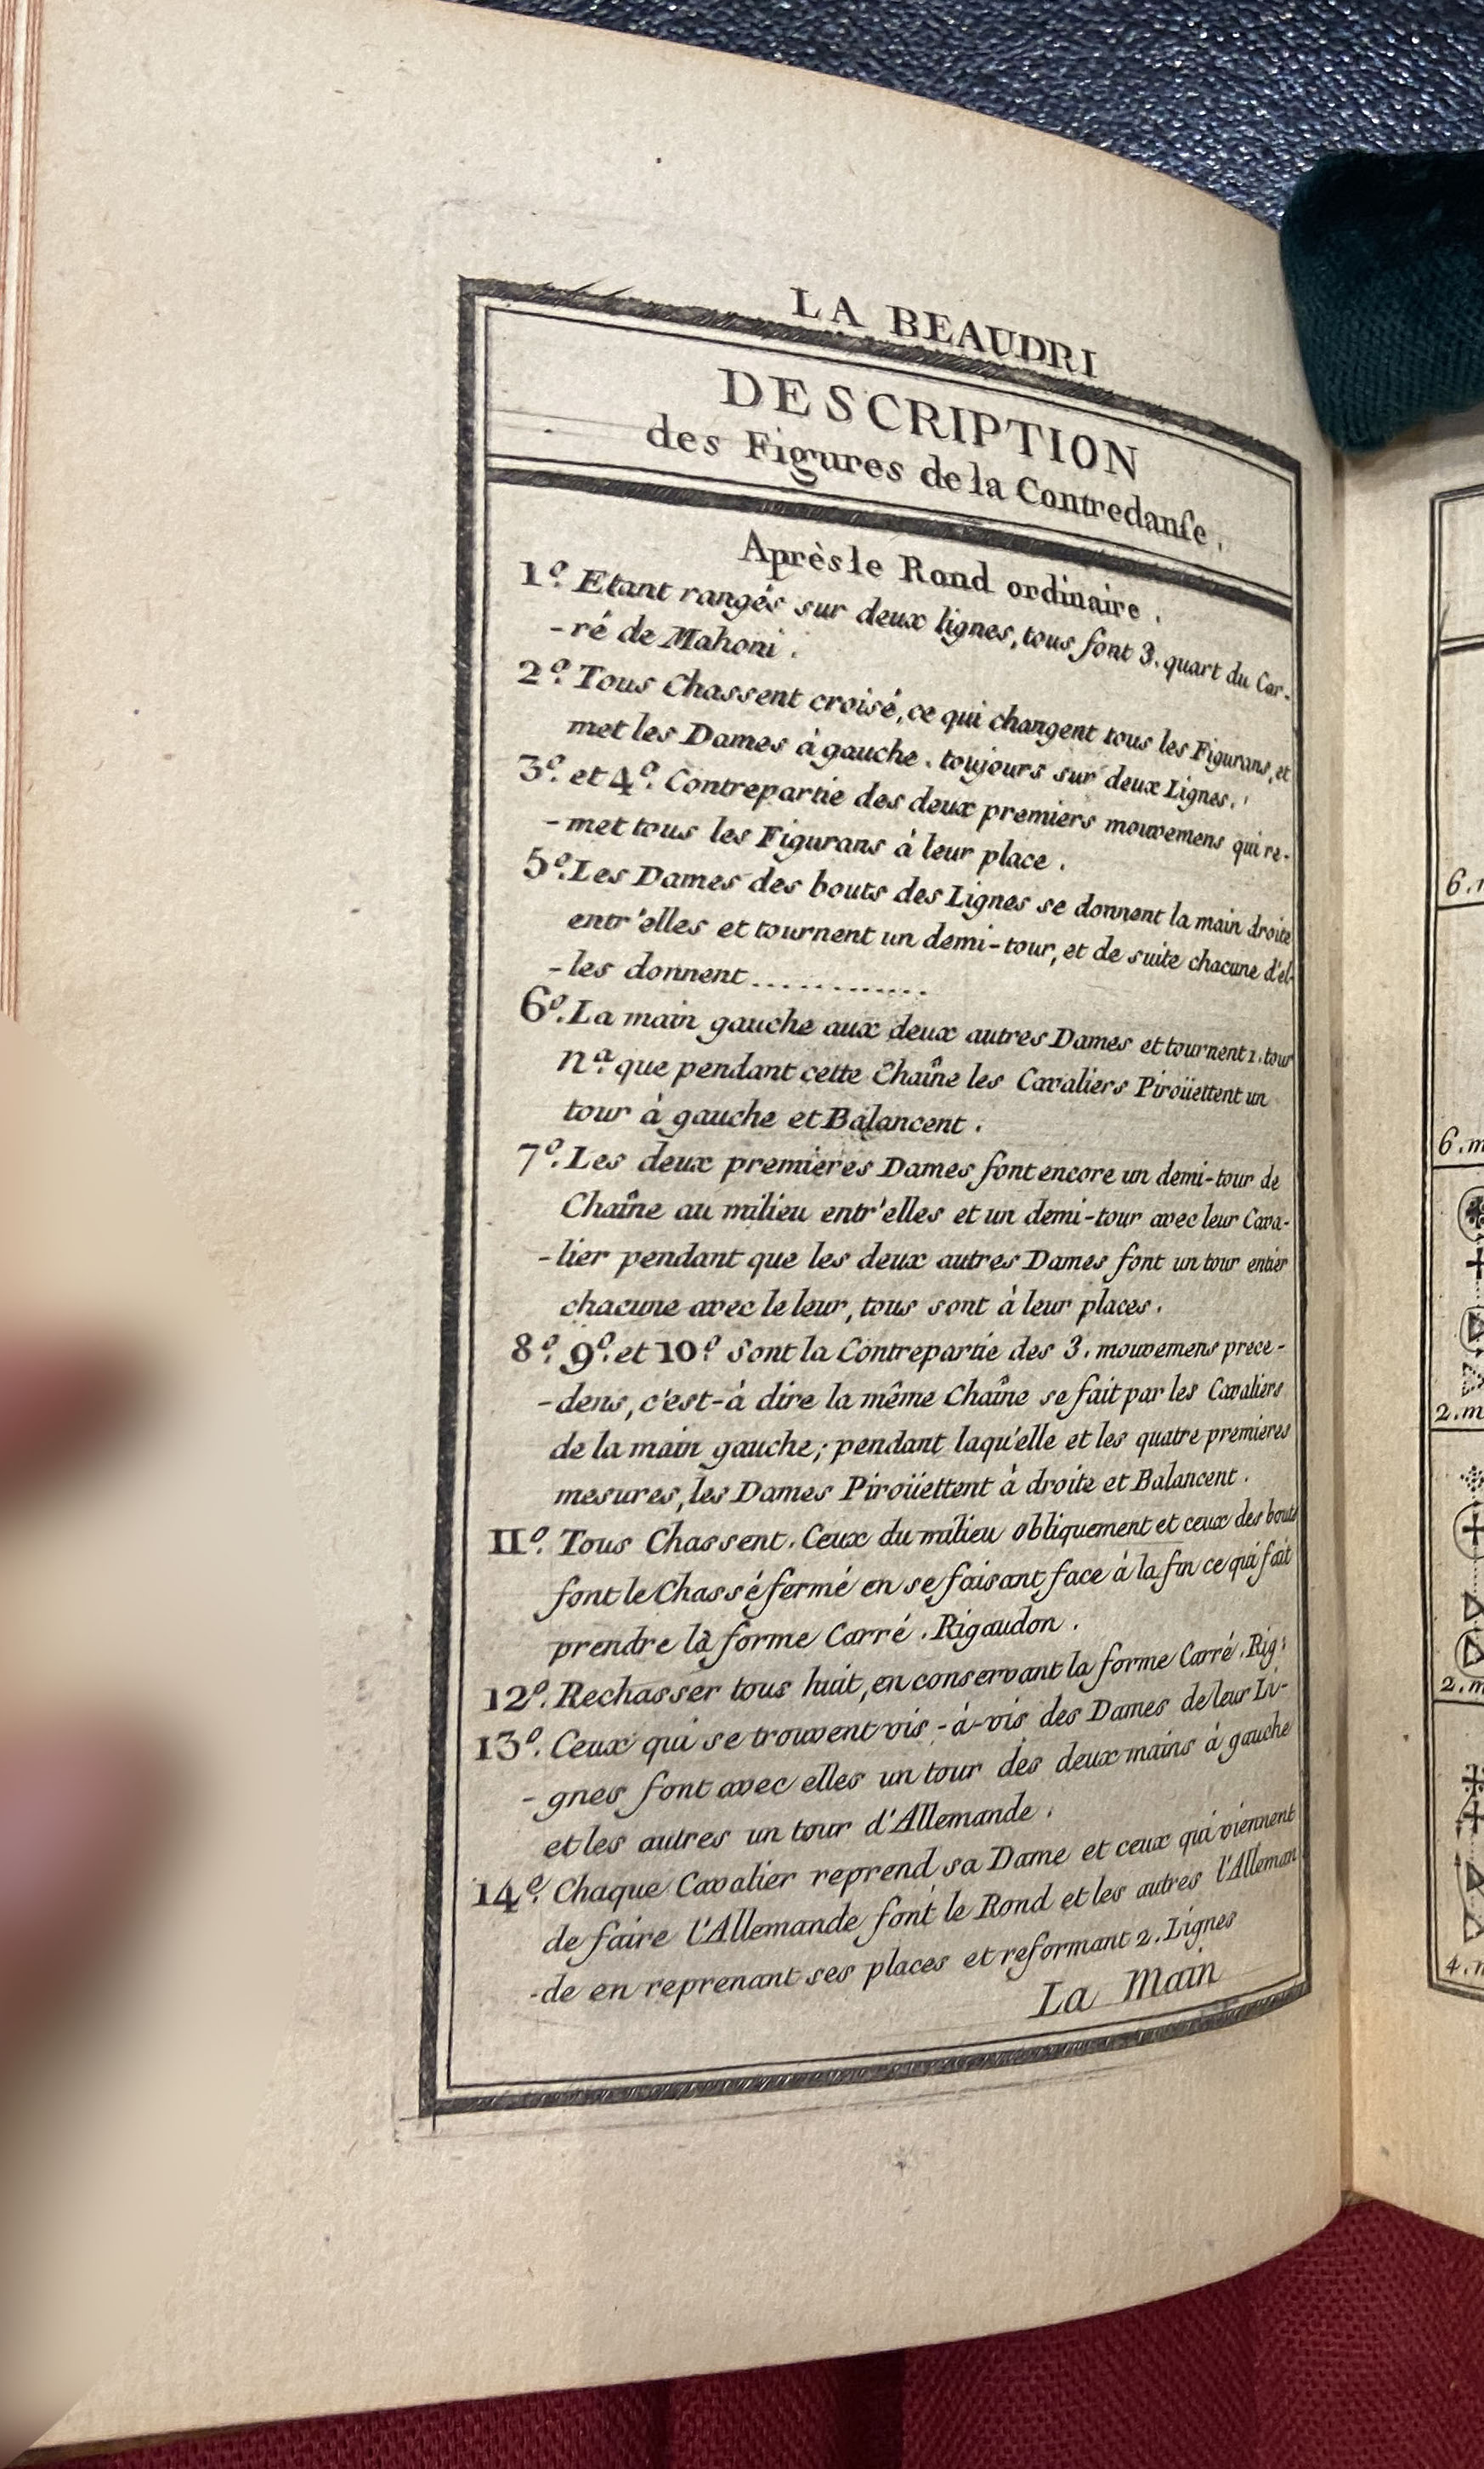 LA BEAUDRI
DESCRIPTION
des Figures de la Contredanſe.
Après le Rond ordinaire.
1º. Etant rangés sur deux lignes, tous font 3. quart du Car-
-ré de Mahoni.
2º. Tous Chassent croisé, ce qui changent tous les Figurans, et
met les Dames à gauche. toujours sur deux Lignes.
3º. et 4º. Contrepartie des deux premiers mouvemens qui re-
-met tous les Figurans à leur place.
5º. Les Dames des bouts des Lignes se donnent la main droite
entr'elles et tournent un demi-tour, et de suite chacune d'el-
-les donnent............
6º. La main gauche aux deux autres Dames et tournent 1. tour
nª. que pendant cette Chaîne les Cavaliers Piroüettent un
tour à gauche et Balancent.
7º. Les deux premieres Dames font encore un demi-tour de
Chaîne au milieu entr'elles et un demi-tour avec leur Cava-
-lier pendant que les deux autres Dames font un tour entier
chacune avec le leur, tous sont à leur places.
8º. 9º. et 10º. Sont la Contrepartie des 3. mouvemens prece-
-dens, c'est-à dire la même Chaîne se fait par les Cavaliers
de la main gauche; pendant laqu'elle et les quatre premieres
mesures, les Dames Piroüettent à droite et Balancent.
11º. Tous Chassent. Ceux du milieu obliquement et ceux des bouts
font le Chassé fermé en se faisant face à la fin ce qui fait
prendre là forme Carré. Rigaudon.
12º. Rechasser tous huit, en conservant la forme Carré. Rig:
13º. Ceux qui se trouvent vis-à-vis des Dames de leur Li-
-gnes font avec elles un tour des deux mains à gauche
et les autres un tour d'Allemande.
14º. Chaque Cavalier reprend sa Dame et ceux qui viennent
de faire l'Allemande font le Rond et les autres l'Alleman
-de en reprenant ses places et reformant 2. Lignes
La Main
6.
6. m
2. m
2. m
4.